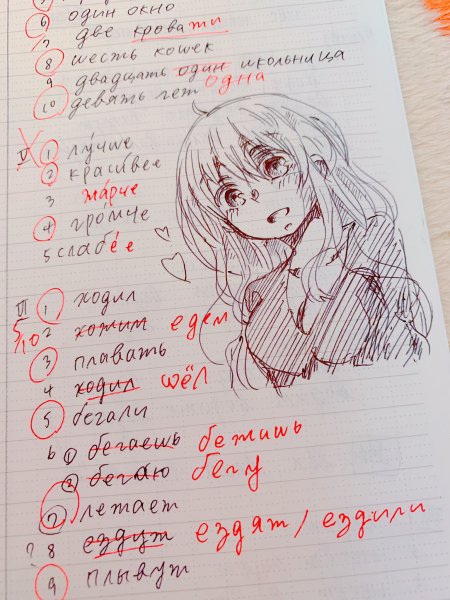 6 один окно
7 две кровати
8 шесть кошек
9 двадцать один школьница одна
10 девять лет
V 1 лучше
2 красивее
3 жарче
4 громче
5 слабее
VI 1 ходил
5/10 2 хотим едем
3 плавать
4 ходил шёл
5 бегали
6 1 бегаешь бежишь
2 бегаю бегу
7 летает
? 8 ездут ездят / ездили
9 плывут